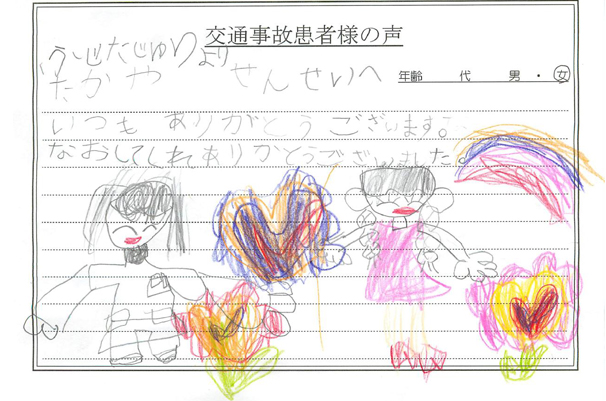 交通事故患者様の声
ふじたじゅりより
たかや せんせいへ
年齢 代 男・女
いつも ありがとう ございます。
なおしてくれあ かとうございました。